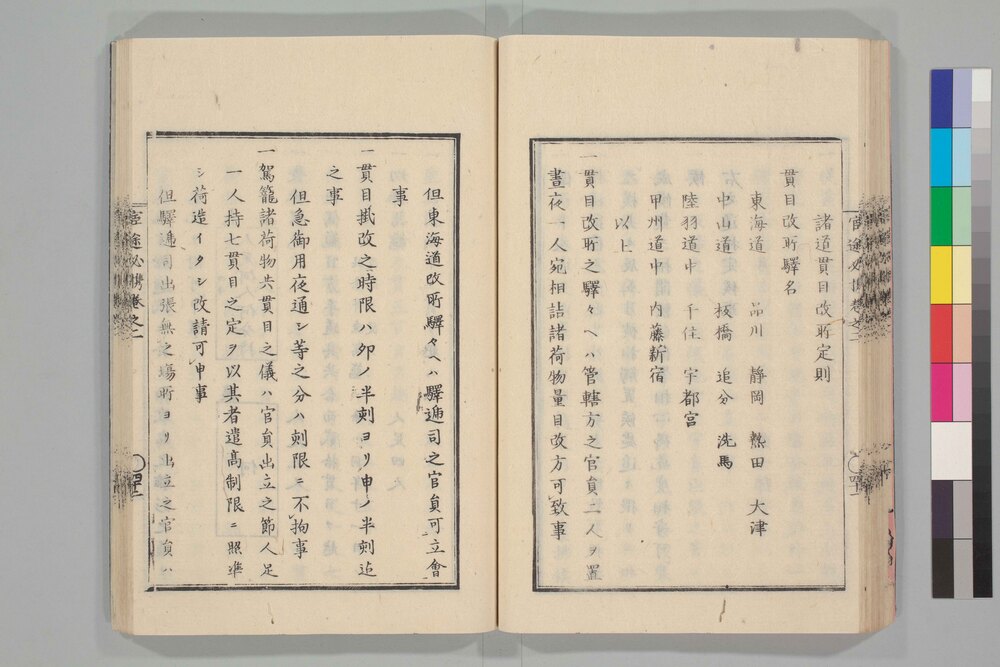 諸道貫目改所定則
貫目改所驛名
東海道 品川 静岡 熱田 大津
中山道 板橋 追分 洗馬
陸羽道中 千住 宇都宮
甲州道中 内藤新宿
以上
一貫目改所之驛々ヘハ管轄方之官員二人ヲ置
晝夜一人宛相詰諸荷物量目改方可致事
但東海道改所驛々ヘハ驛逓司之官員可立會
事
一貫目掛改之時限ハ卯ノ半刻ヨリ申ノ半刻迄
之事
但急御用夜通シ等之分ハ刻限ニ不拘事
一駕籠諸荷物共貫目之儀ハ官員出立之節人足
一人持七貫目之定ヲ以其者遣高制限ニ照準
シ荷造イタシ改請可申事
但驛逓司出張無之場所ヨリ出立之官員ハ
官途必携巻之二